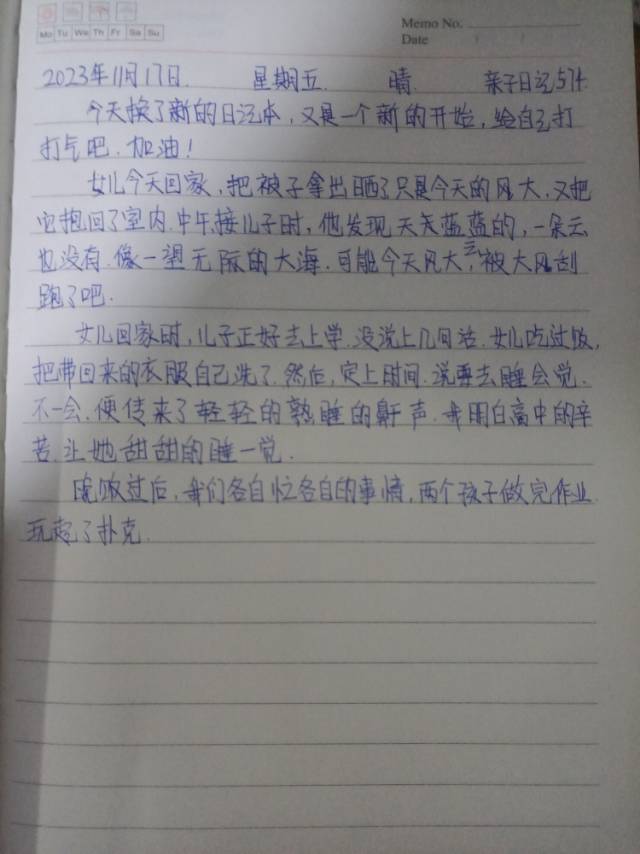 Mo Tu We Th Fr Sa Su
Memo No.
Date / /
2023年11月17日. 星期五. 晴. 亲子日记574
今天换了新的日记本，又是一个新的开始，给自己打
打气吧.加油！
女儿今天回家，把被子拿出晒了只是今天的风大.又把
它抱回了室内.中午接儿子时，他发现天天蓝蓝的，一朵云
也没有.像一望无际的大海.可能今天风大，云被大风刮
跑了吧.
女儿回家时，儿子正好去上学.没说上几句话.女儿吃过饭，
把带回来的衣服自己洗了.然后，定上时间.说要去睡会觉.
不一会.便传来了轻轻的熟睡的鼾声.我明白高中的辛
苦.让她甜甜的睡一觉.
晚饭过后，我们各自忙各自的事情，两个孩子做完作业
玩起了扑克.